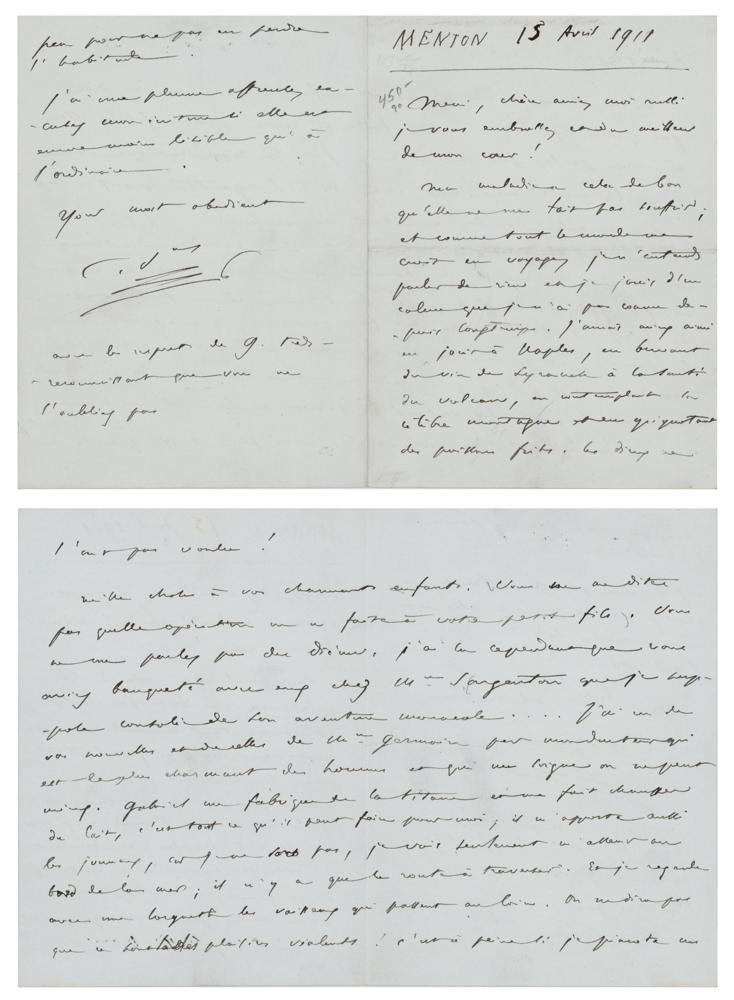 MENTON 15 Avril 1911
450-
90
Merci, chère amie, moi aussi
je vous embrasse du meilleur
de mon cœur !
Ma maladie a cela de bon
qu'elle ne me fait pas souffrir ;
et comme tout le monde me
croit en voyage, je n'entends
parler de rien et je jouis d'un
calme que je n'ai pas connu de-
-puis longtemps. J'aurais mieux aimé
en jouir à Naples, en buvant
du vin de Syracuse à la santé
du volcan, en contemplant la
célèbre montagne et en grignotant
des poissons frits. les dieux ne
l'ont pas voulu !
mille choses à vos charmants enfants. Vous ne me dites
pas quelle opération on a faite à votre petit fils. Vous
ne me parlez pas des Dieux, j'ai lu cependant que vous
aviez banqueté avec eux chez Mme d'Argenton que je sup-
-pose consolé de son aventure .... J'ai eu de
vos nouvelles et de celles de Mme Germain par mon docteur qui
est le plus charmant des hommes et qui me soigne on ne peut
mieux. Gabriel me fabrique de la tisane et me fait chauffer
du lait, c'est tout ce qu'il peut faire pour moi ; il m'apporte aussi
les journaux, car je ne sors pas, je vais seulement m'asseoir au
bord de la mer ; il n'y a que la route à traverser. Et je regarde
avec une lorgnette les vaisseaux qui passent au loin. On ne dira pas
que ce sont là des plaisirs violents ! c'est à peine si je pianote un
peu pour ne pas en perdre
l'habitude.
J'ai une plume affreuse, ex-
-cusez mon écriture si elle est
encore moins lisible qu'à
l'ordinaire.
Your most obedient
avec les respects de G. très-
-reconnaissant que vous ne
l'oubliez pas